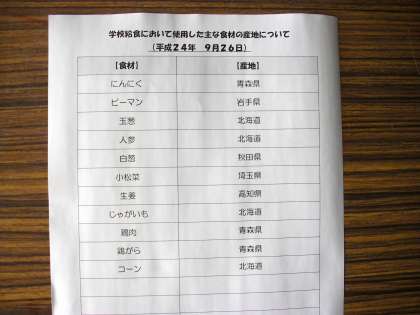 学校給食において使用した主な食材の産地について
(平成24年 9月26日)
【食材】 【産地】
にんにく 青森県
ピーマン 岩手県
玉葱 北海道
人参 北海道
白葱 秋田県
小松菜 埼玉県
生姜 高知県
じゃがいも 北海道
鶏肉 青森県
鶏がら 青森県
コーン 北海道